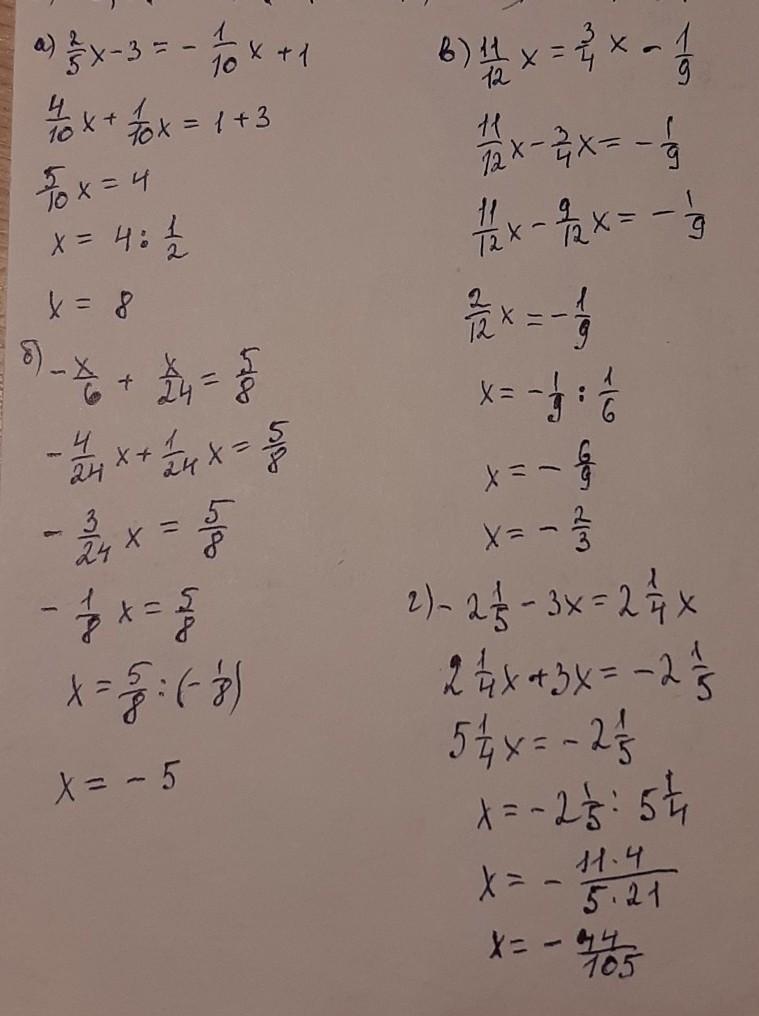 а) 2/5 x - 3 = - 1/10 x + 1
4/10 x + 1/10 x = 1 + 3
5/10 x = 4
x = 4 : 1/2
x = 8
б) - x/6 + x/24 = 5/8
- 4/24 x + 1/24 x = 5/8
- 3/24 x = 5/8
- 1/8 x = 5/8
x = 5/8 : (- 1/8)
x = - 5
в) 11/12 x = 3/4 x - 1/9
11/12 x - 3/4 x = - 1/9
11/12 x - 9/12 x = - 1/9
2/12 x = - 1/9
x = - 1/9 : 1/6
x = - 6/9
x = - 2/3
г) - 2 1/5 - 3x = 2 1/4 x
2 1/4 x + 3x = - 2 1/5
5 1/4 x = - 2 1/5
x = - 2 1/5 : 5 1/4
x = - 11·4/5·21
x = - 44/105